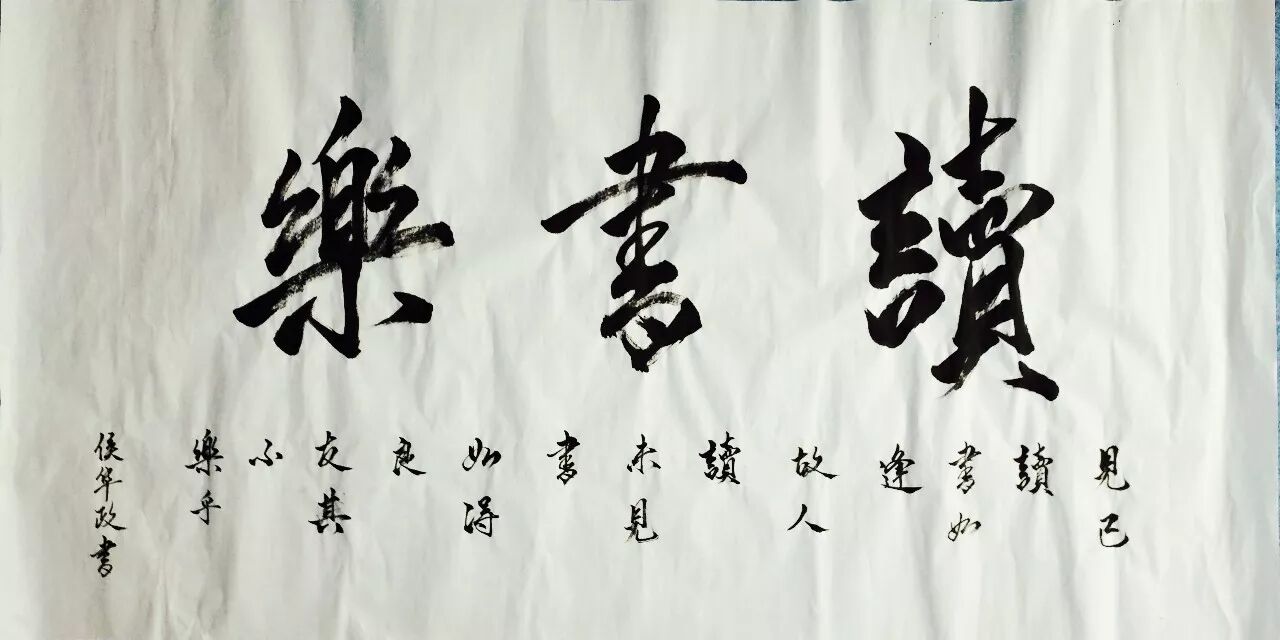 讀書樂
見已
讀
書如
逢
故人
讀
未見
書
如得
良
友其
不
樂乎
侯华政書